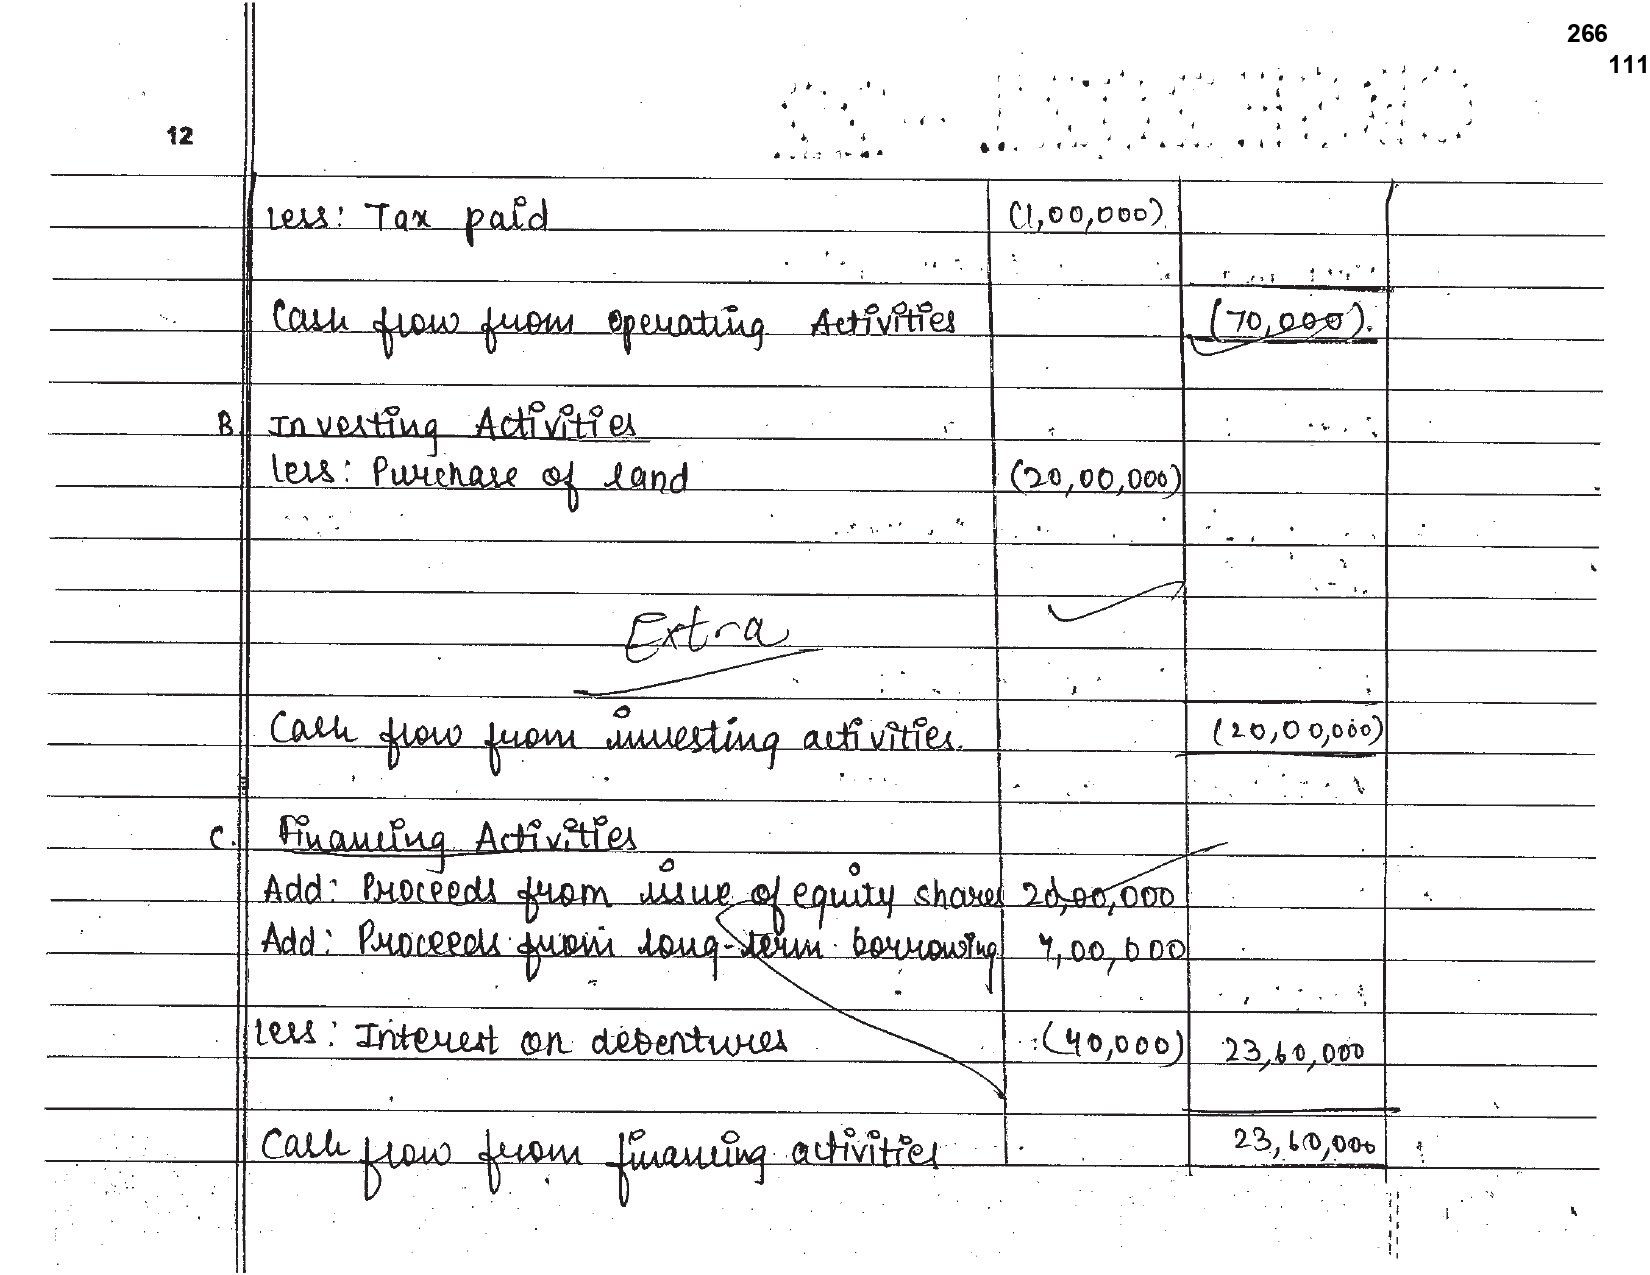 266
111
12
Less: Tax paid (1,00,000)
Cash flow from operating Activities (70,000).
B. Investing Activities
Less: Purchase of land (20,00,000)
Extra
Cash flow from investing activities. (20,00,000)
C. Financing Activities
Add: Proceeds from issue of equity shares 20,00,000
Add: Proceeds from long-term borrowing 4,00,000
Less: Interest on debentures (40,000) 23,60,000
Cash flow from financing activities 23,60,000